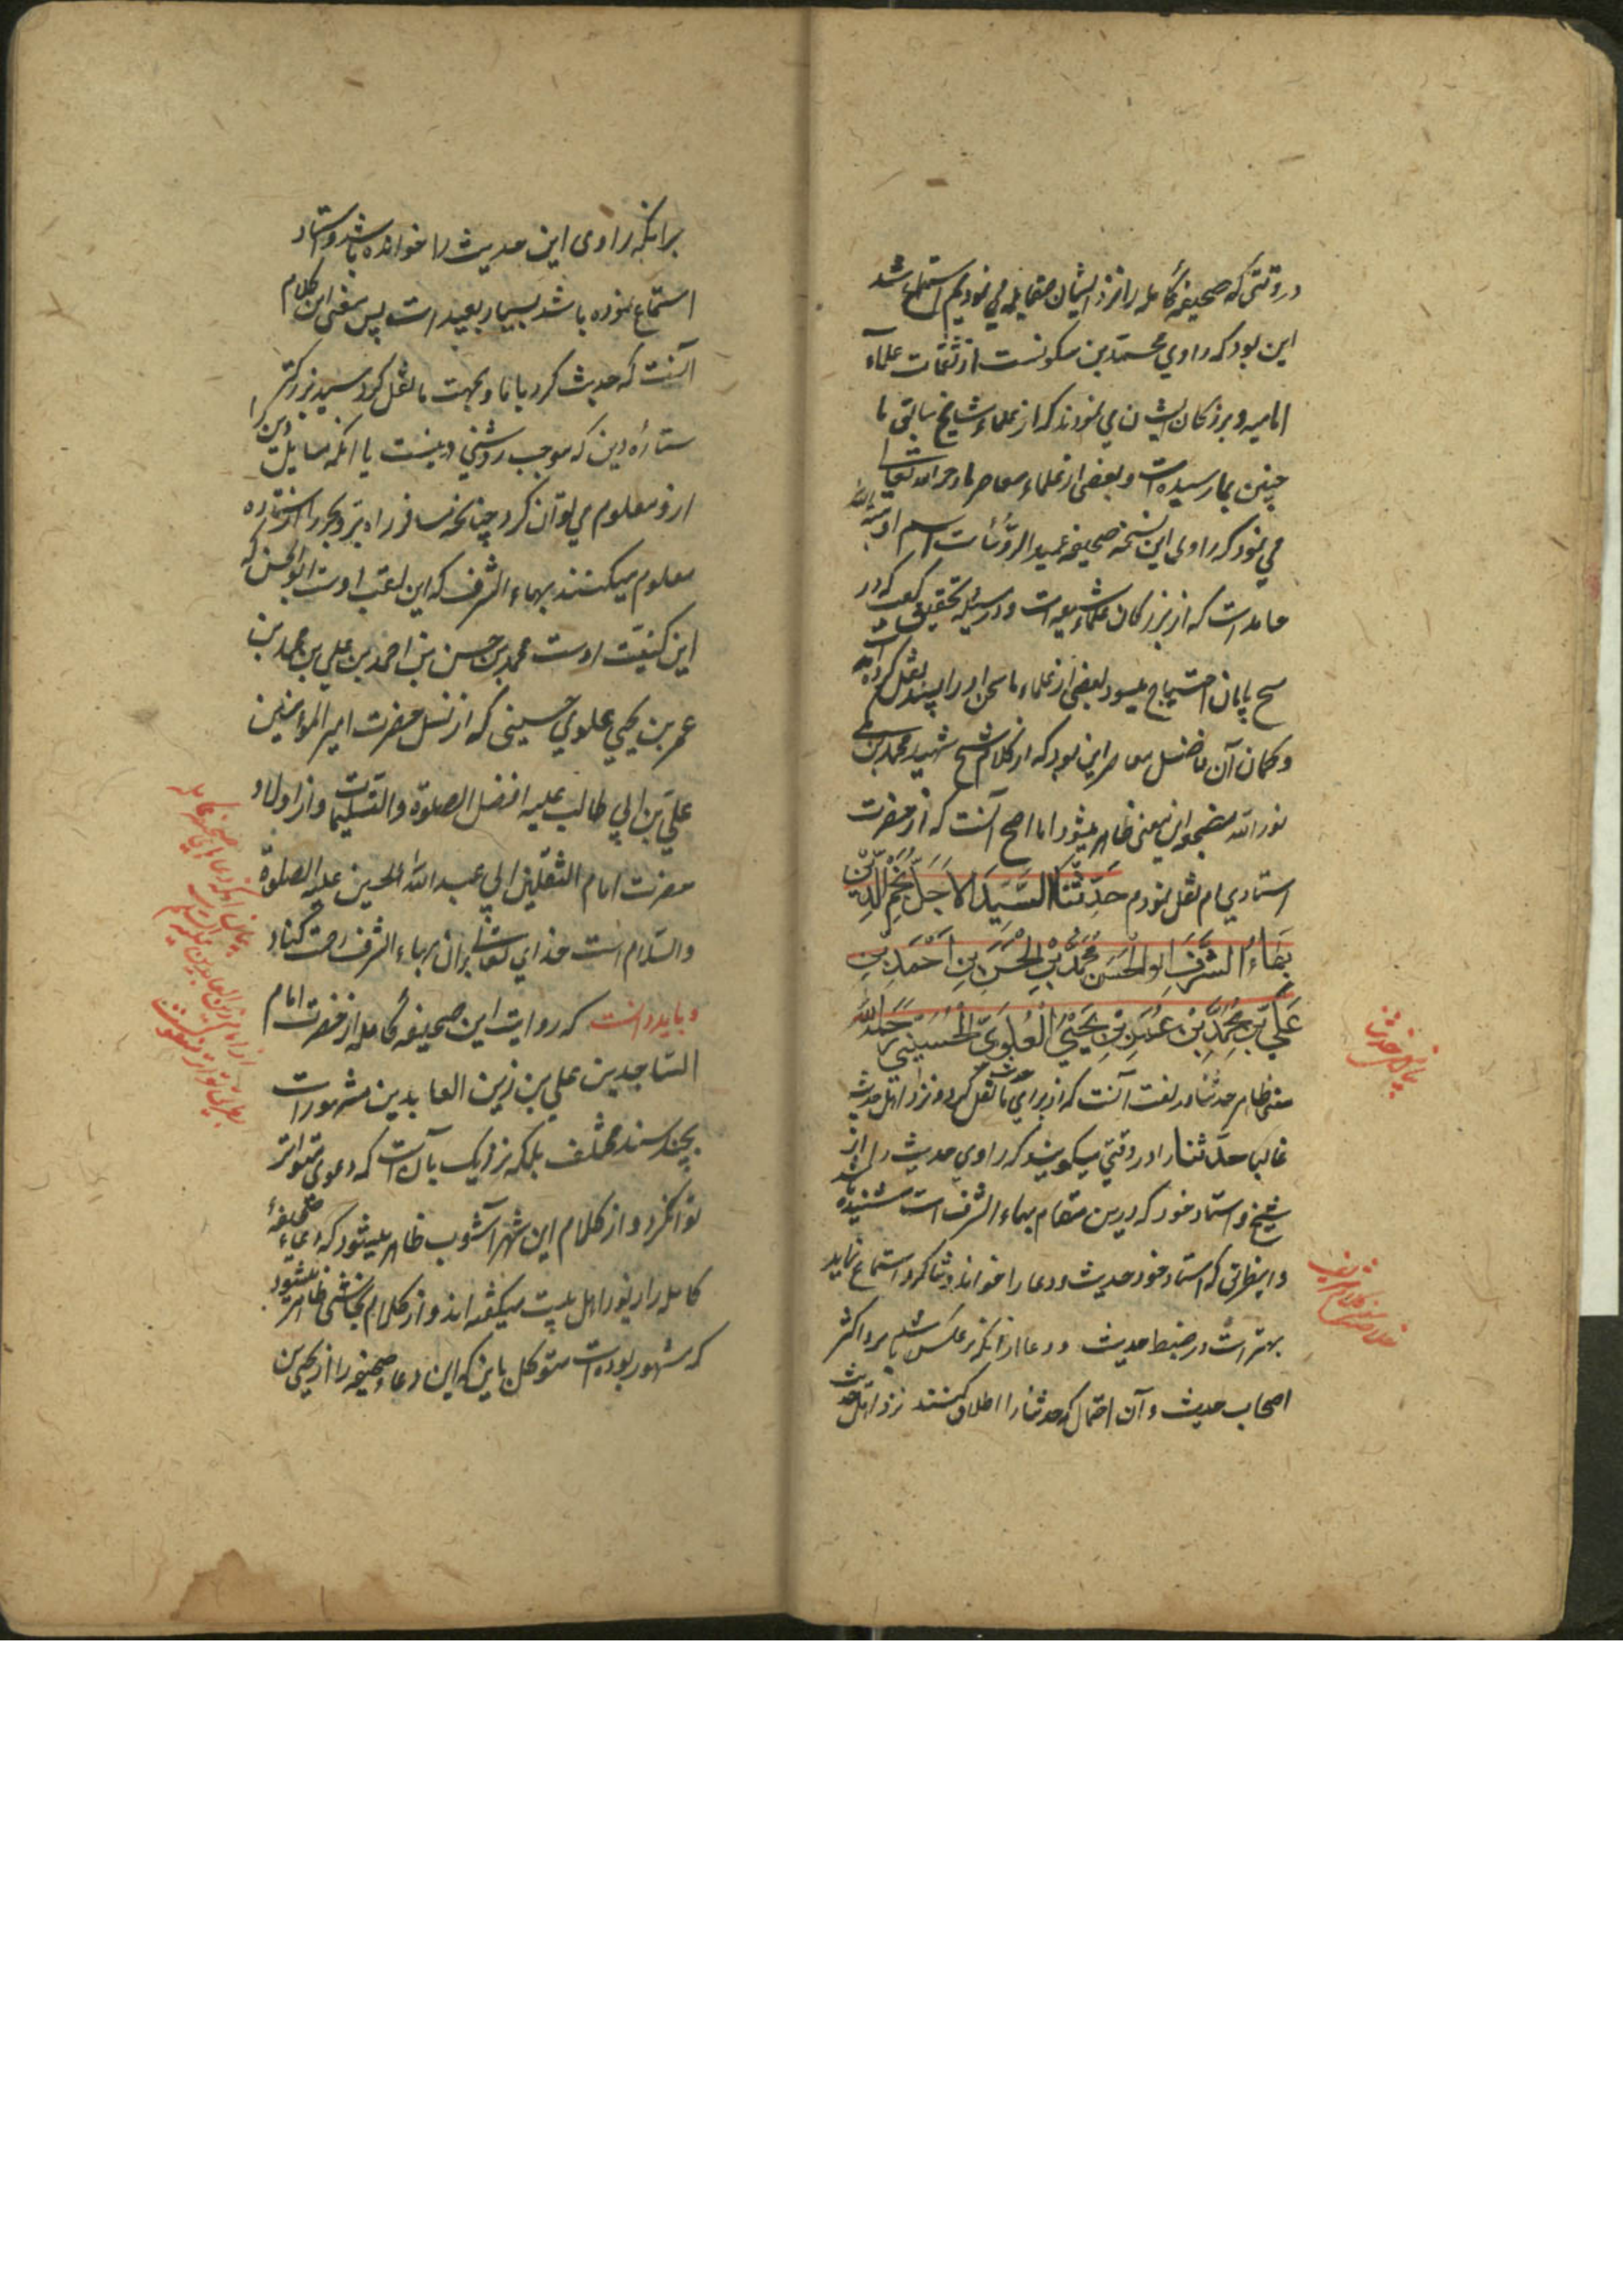 در وقتی که صحیفهٔ کامله را نزد ایشان مقابله می نمودیم استماع شد
این بود که راوی محمد بن سکونست از ثقات علمآء
امامیه و بزرکان ایشان می نمودند که از علماء مشایخ سابق ما
چنین بما رسیده است و بعضی از علماء معاصر ما رحم الله تعالی
می نمود که راوی این نسخه صحیفه عمید الرؤسات اسم او هبة الله
حامد است که از بزرکان علماء شیعه است و در مسئله تحقیق کعب که در
مسح پایان احتیاج میشود بعضی از علماء ما سخن او را پسند نقل کرده اند
و کمان آن فاضل معاصر این بود که از کلام شیخ شهید محمد بن مکی
نور الله مضجعه این معنی ظاهر میشود اما اصح آنست که از حضرت
استادی ام نقل نمودم حَدَّثَنَا السَّیِّدُ الاَجَلُّ نَجْمُ الدِّیْنِ
بَهَاءُ الشَّرَفِ ابو الْحَسَنِ مُحَمَّدُ بْنُ الْحَسَنِ بْنِ اَحْمَدَ بْنِ
عَلِیِّ بْنِ مُحَمَّدِ بْنِ عُمَرَ بْنِ یَحْیَی الْعَلَوِیُّ الْحُسَیْنِی رَحِمَهُ اللهُ
معنی ظاهر حدثنا در لغت آنست که از برای ما نقل کرد و نزد اهل حدیث
غالبا حدّثنا را در وقتی میکویند که راوی حدیث را از
شیخ و استاد خود که درین مقام بهاء الشرف است شنیده باشد
و این طریق که استاد خود حدیث و دعا را خواند و شاکرد استماع نماید
بهتر است در ضبط حدیث و دعا از انکه بر عکس باشد نزد اکثر
اصحاب حدیث و آن احتمال که حدثنا را اطلاق کنند نزد اهل حدیث
بیان معنی حدثنا
برانکه راوی این حدیث را خوانده باشد و استاد
استماع نموده باشد بسیار بعید است پس معنی این کلام
آنست که حدیث کرد با ما و بجهت ما نقل کرد سید بزرکتر
ستارهٔ دین که موجب روشنی دینست یا انکه مسایل دین را
ازو معلوم می توان کرد چنانچه مسافر راه بر و بحر را از ستاره
معلوم میکنند بهاء الشرف که این لقب اوست ابو الحسن که
این کنیت اوست محمد بن حسن بن احمد بن علی بن محمد بن
عمر بن یحیی علوی حسینی که از نسل حضرت امیر المؤمنین
علی بن ابی طالب علیه افضل الصلوة والتسلیمات و از اولاد
حضرت امام الثقلین ابی عبد الله الحسین علیه الصلوة
والسّلام است خدای تعالی بران بهاء الشرف رحمت کناد
و باید دانست که روایت این صحیفهٔ کامله از حضرت امام
الساجدین علی بن زین العابدین مشهور است
بچند سند مختلف بلکه نزدیک بآن است که دعوی متواتر
توان کرد و از کلام ابن شهر آشوب ظاهر میشود که دعاء صحیفهٔ
کامله را زبور اهل بیت میکفته اند و از کلام نجاشی ظاهر میشود
که مشهور بوده است متوکل باین که این دعاء صحیفه را از یحیی بن